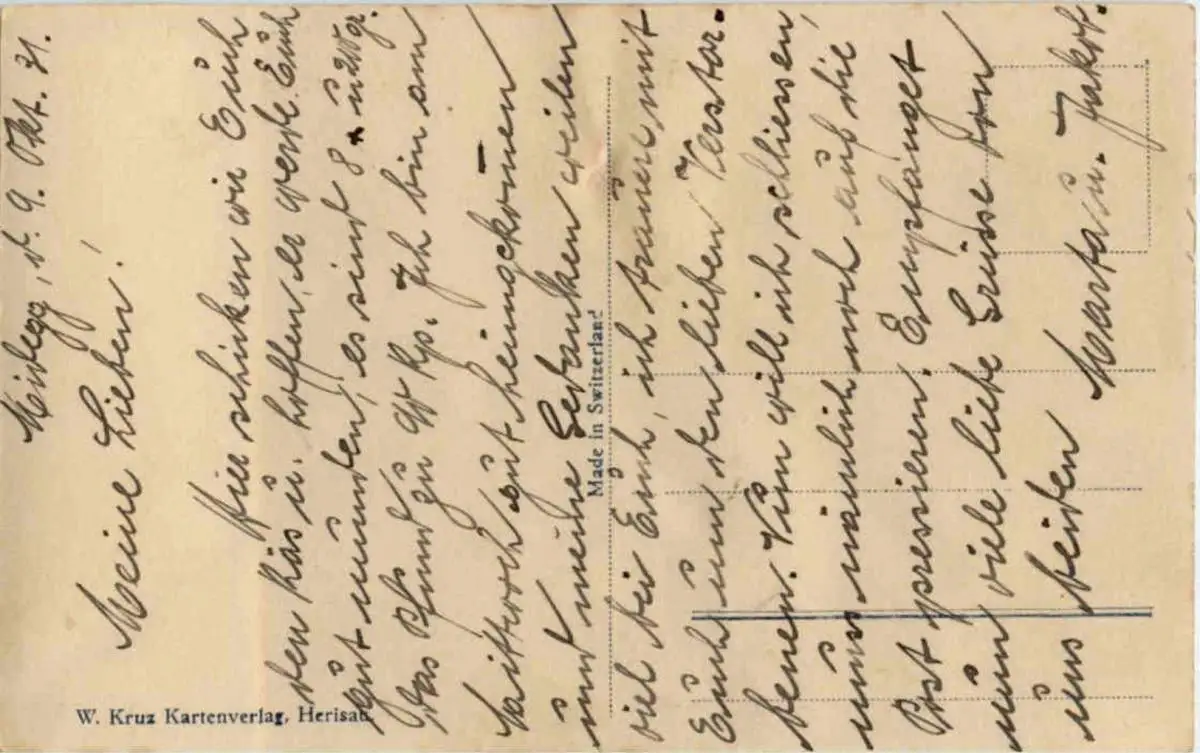 d. 9. Okt. 31.
Meine Lieben!
Hier schiken wir Euch
den Käs u. hoffen, er werde Euch
gut munden, es sind 8
das Pfund zu Rp. Ich bin am
Mittwoch gut heimgekomen
und meine Gedanken weilen
viel bei Euch, ich traure mit
Euch um den lieben Verstor-
benen. Nun will ich schliessen,
muss nämlich noch auf die
Post pressieren. Empfanget
nun viele liebe Grüsse von
uns beiden Marta u. Jakob.
Made in Switzerland
W. Kruz Kartenverlag, Herisau.